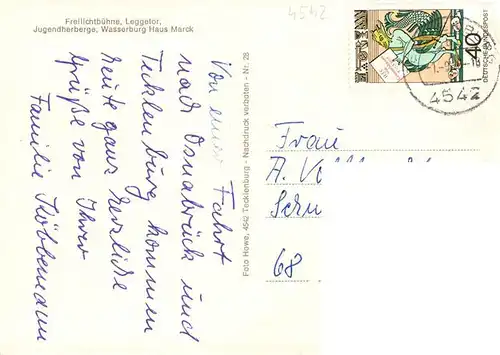 4542
Freilichtbühne, Leggetor,
Jugendherberge, Wasserburg Haus Marck
Von einer Fahrt
nach Osnabrück und
Tecklenburg kommen
heute ganz herzliche
Grüße von Ihrer
Familie
Foto Howe, 4542 Tecklenburg - Nachdruck verboten - Nr. 28
40
DEUTSCHE BUNDESPOST
4542
Frau
A.
68